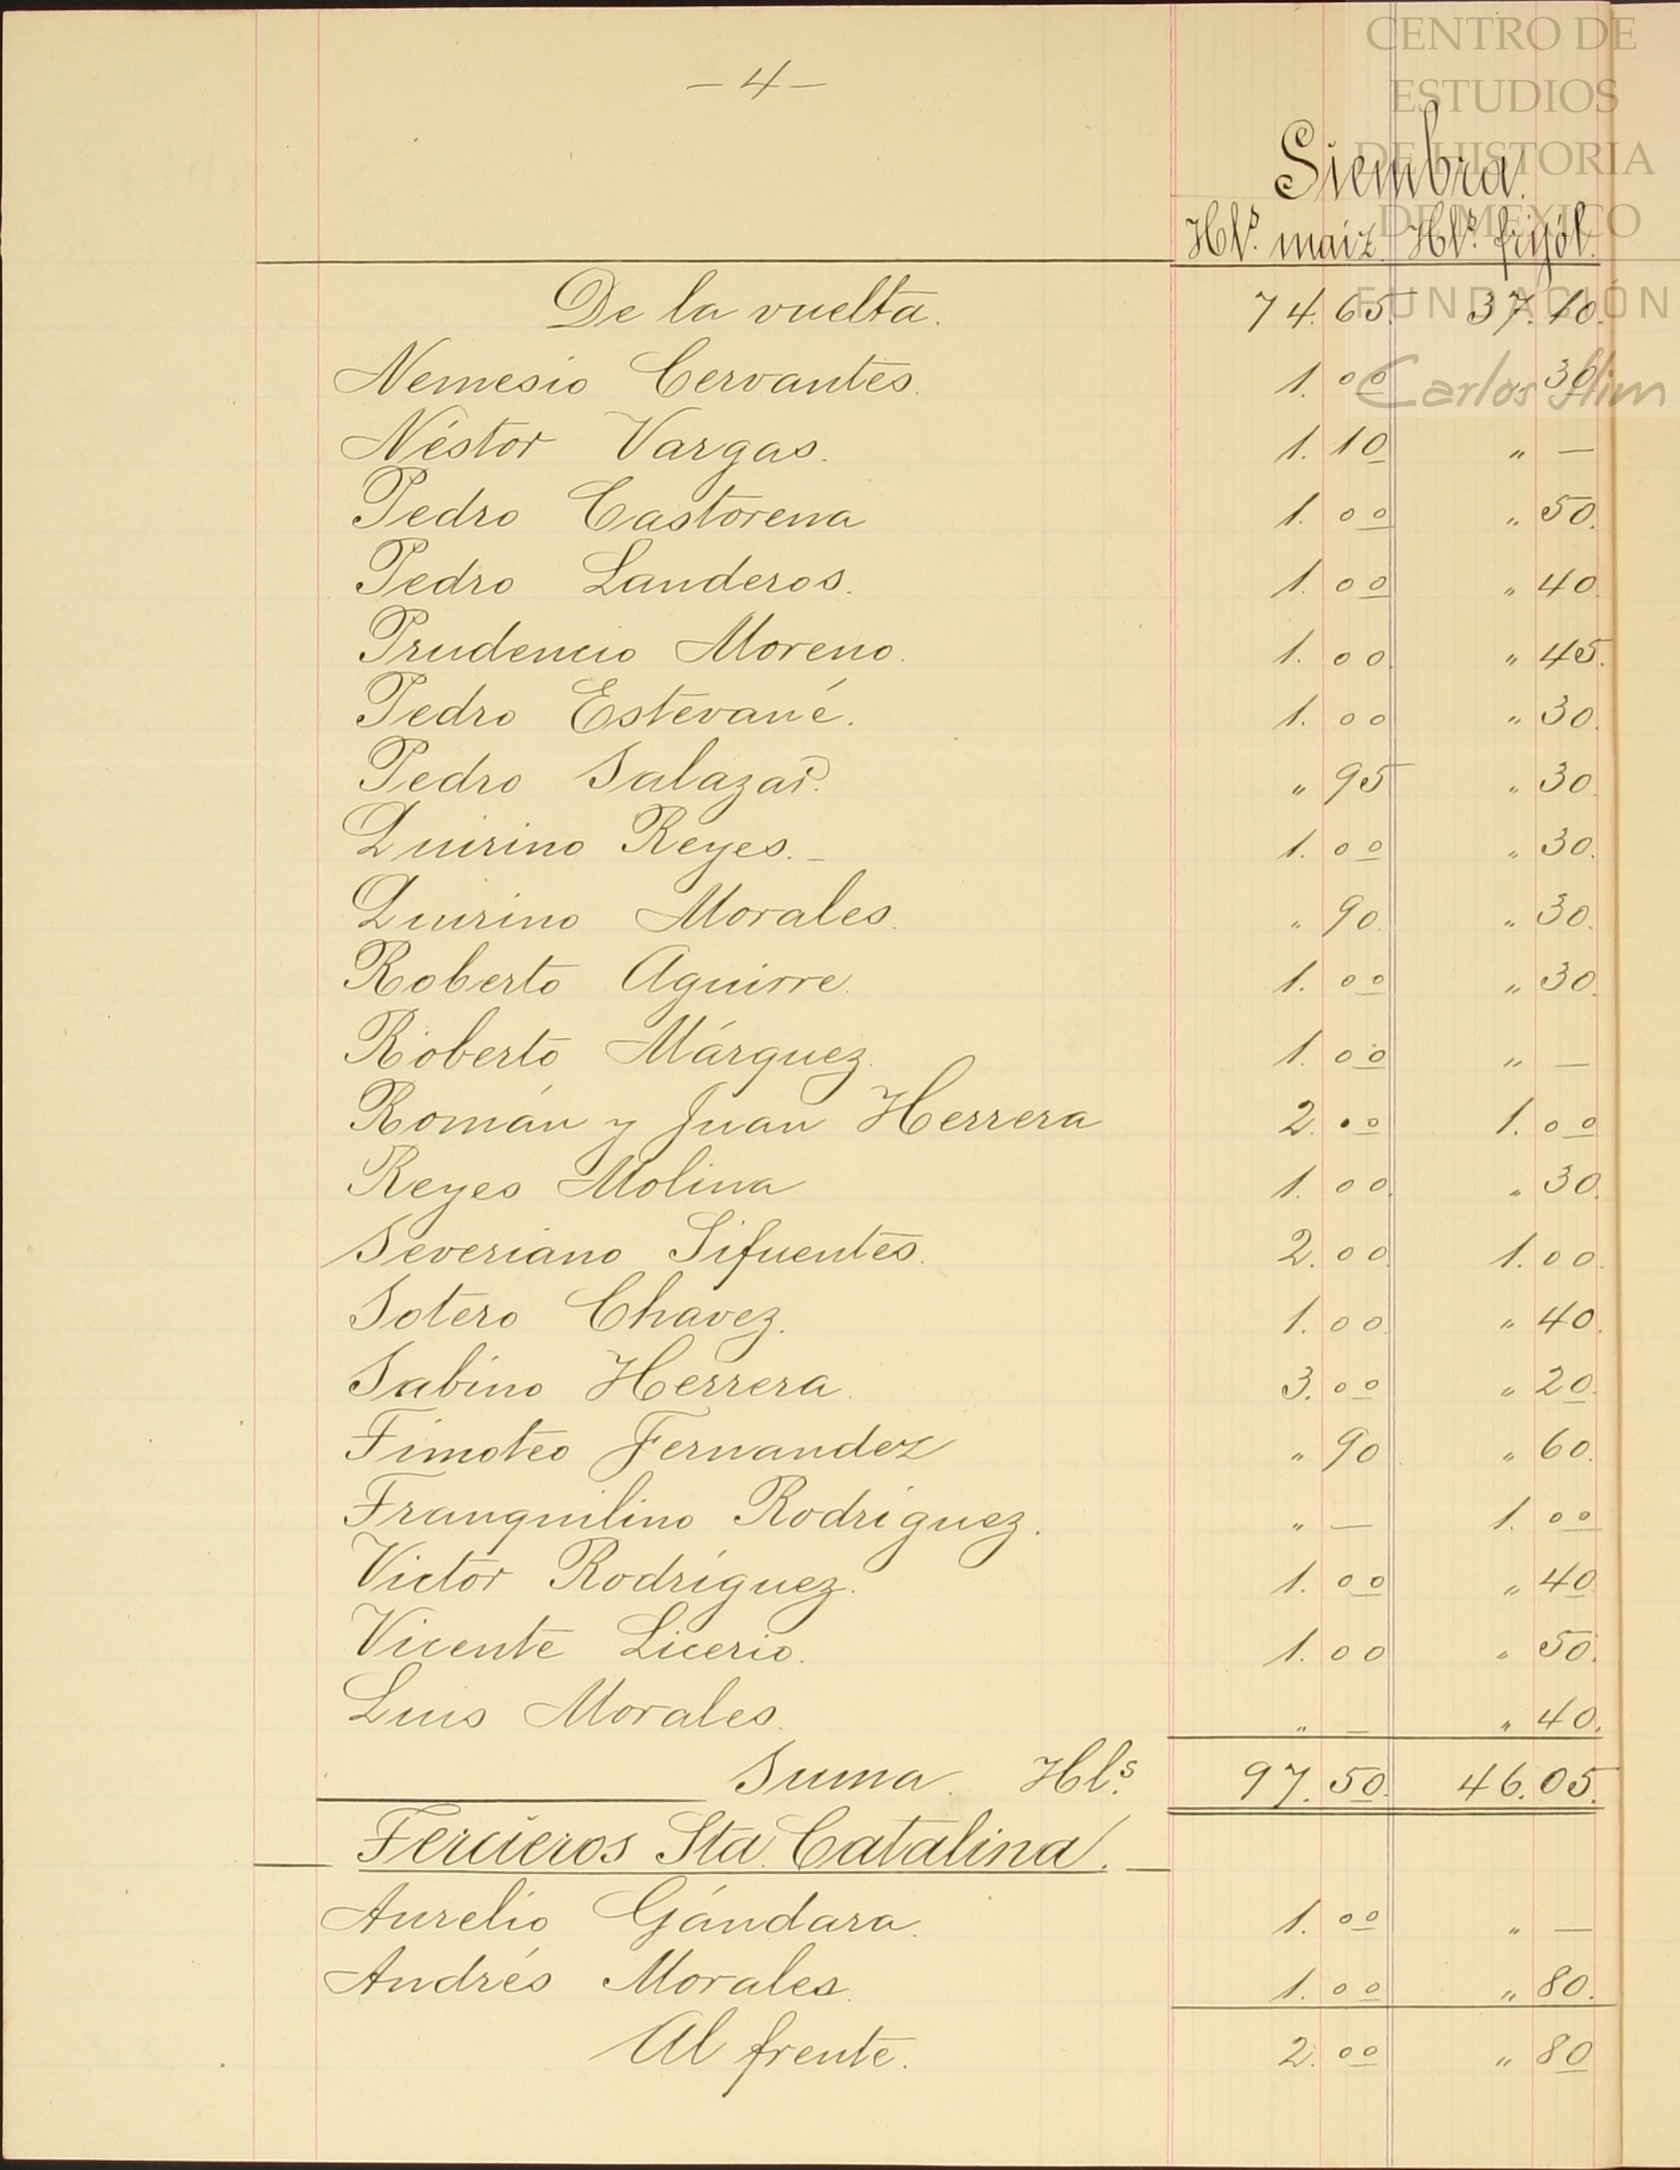 CENTRO DE
ESTUDIOS
DE HISTORIA
DE MÉXICO
FUNDACIÓN
Carlos Slim
- 4 -
Siembra.
Hls. maiz. Hls. frijól.
De la vuelta. 74.65. 37.10.
Nemesio Cervantes. 1.00 " 30.
Néstor Vargas. 1.10 " —
Pedro Castorena 1.00 " 50.
Pedro Landeros. 1.00 " 40.
Prudencio Moreno. 1.00. " 45.
Pedro Estevané. 1.00 " 30.
Pedro Salazar. " 95 " 30.
Quirino Reyes. - 1.00 " 30.
Quirino Morales. " 90. " 30.
Roberto Aguirre. 1.00 " 30.
Roberto Márquez. 1.00 " —
Román y Juan Herrera 2.00 1.00
Reyes Molina 1.00. " 30.
Severiano Sifuentes. 2.00. 1.00.
Sotero Chavez. 1.00. " 40.
Sabino Herrera. 3.00 " 20.
Timoteo Fernandez " 90 " 60.
Tranquilino Rodríguez. " — 1.00
Victor Rodríguez. 1.00 " 40.
Vicente Licerio. 1.00 " 50.
Luis Morales. " — " 40.
Suma Hls. 97.50. 46.05.
Tercieros Sta. Catalina.
Aurelio Gándara. 1.00 " —
Andrés Morales. 1.00 " 80.
Al frente. 2.00 " 80